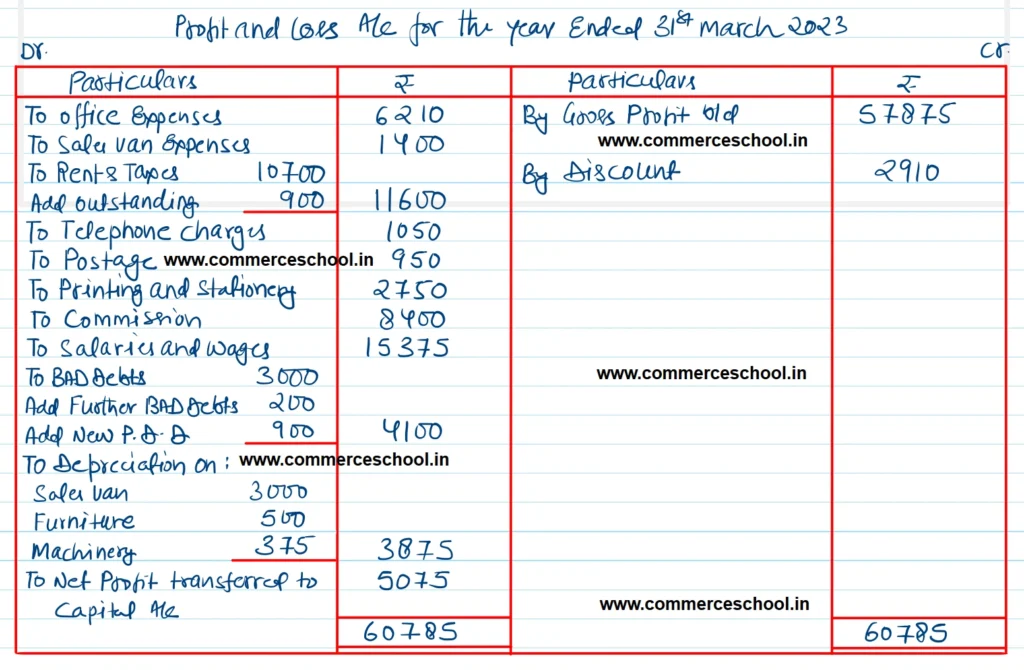 Profit and Loss A/c for the year Ended 31st March 2023
Dr. Cr.
Particulars ₹ Particulars ₹
To office Expenses 6210 By Gross Profit b/d 57875
www.commerceschool.in
To Sales van Expenses 1400
To Rent & Taxes 10700 By Discount 2910
Add outstanding 900 11600
To Telephone charges 1050
To Postage www.commerceschool.in 950
To Printing and stationery 2750
To Commission 8400
To Salaries and wages 15375
To BAD Debts 3000 www.commerceschool.in
Add Further BAD Debts 200
Add New P.D.D 900 4100
To Depreciation on : www.commerceschool.in
Sales van 3000
Furniture 500
Machinery 375 3875
To Net Profit transferred to 5075
Capital A/c www.commerceschool.in
60785 60785